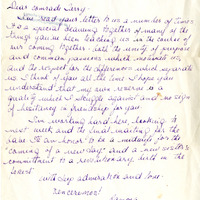 Dear Comrade Terry:
I've read your letter to us a number of times.
For a special drawing together of many of the
things you've been teaching us in the course of
our coming together - both the unity of purpose
and common passions which motivate us,
and the respect for the differences which separate
us. I think of you all the time. I hope you
understand that my own reserve is a
quality which I struggle against and no sign
of hesitancy in friendship for you.
I'm working hard here looking to
next week and the final meeting for the
base. I'm honored to be a midwife for the
coming of a new day and a new
commitment to a revolutionary birth in the
With deep admiration and love.
Venceremos!